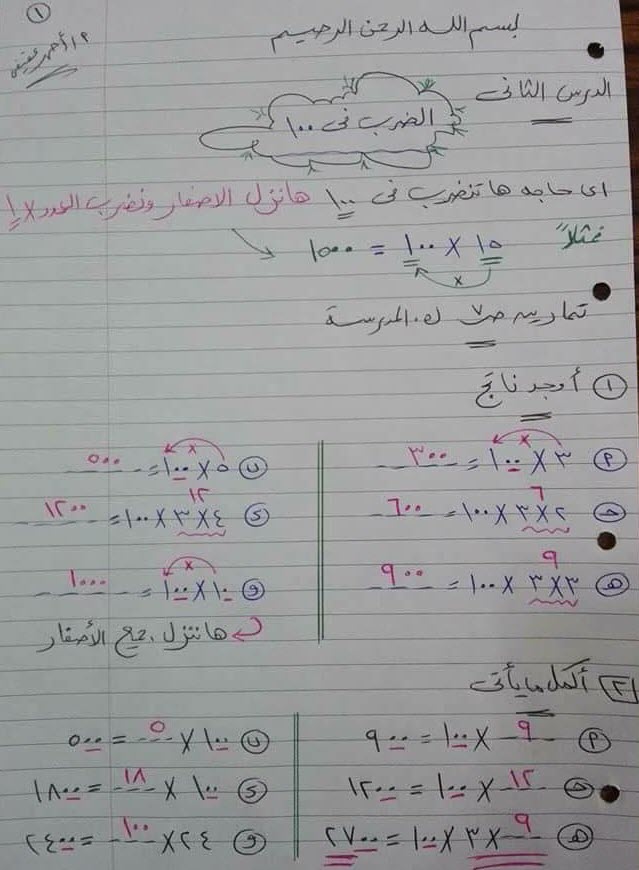 ١
أ/أحمد عفيفى
بسم الله الرحمن الرحيم
الدرس الثانى
الضرب فى ١٠٠
اى حاجه هاتنضرب فى ١٠٠ هاننزل الاصفار ونضرب العدد × ١
فمثلاً ١٠ × ١٠٠ = ١٠٠٠
×
تمارين ص٧ ك.المدرسة
١ أوجد ناتج
٣ × ١٠٠ = ٣٠٠
ب ٥ × ١٠٠ = ٥٠٠
ح ٢ × ٣ × ١٠٠ = ٦٠٠
٦
ى ٤ × ٣ × ١٠٠ = ١٢٠٠
١٢
هـ ٣ × ٣ × ١٠٠ = ٩٠٠
٩
و ١٠ × ١٠٠ = ١٠٠٠
هاننزل جميع الأصفار
٢ أكمل مايأتى
٩ × ١٠٠ = ٩٠٠
ب ١٠٠ × ٥ = ٥٠٠
ح ١٢ × ١٠٠ = ١٢٠٠
ى ١٠٠ × ١٨ = ١٨٠٠
هـ ٩ × ٣ × ١٠٠ = ٢٧٠٠
و ٢٤ × ١٠٠ = ٢٤٠٠